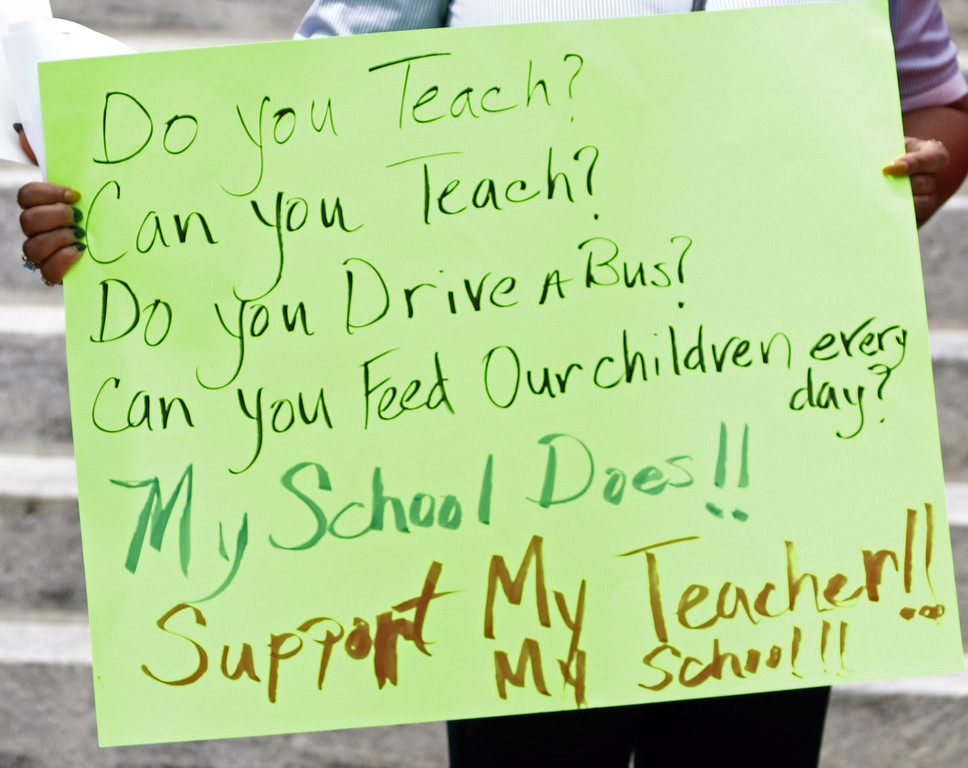 Do you Teach?
Can you Teach?
Do you Drive A Bus?
Can you Feed Our children every
day?
My School Does!!
Support My Teacher!!
My School!!